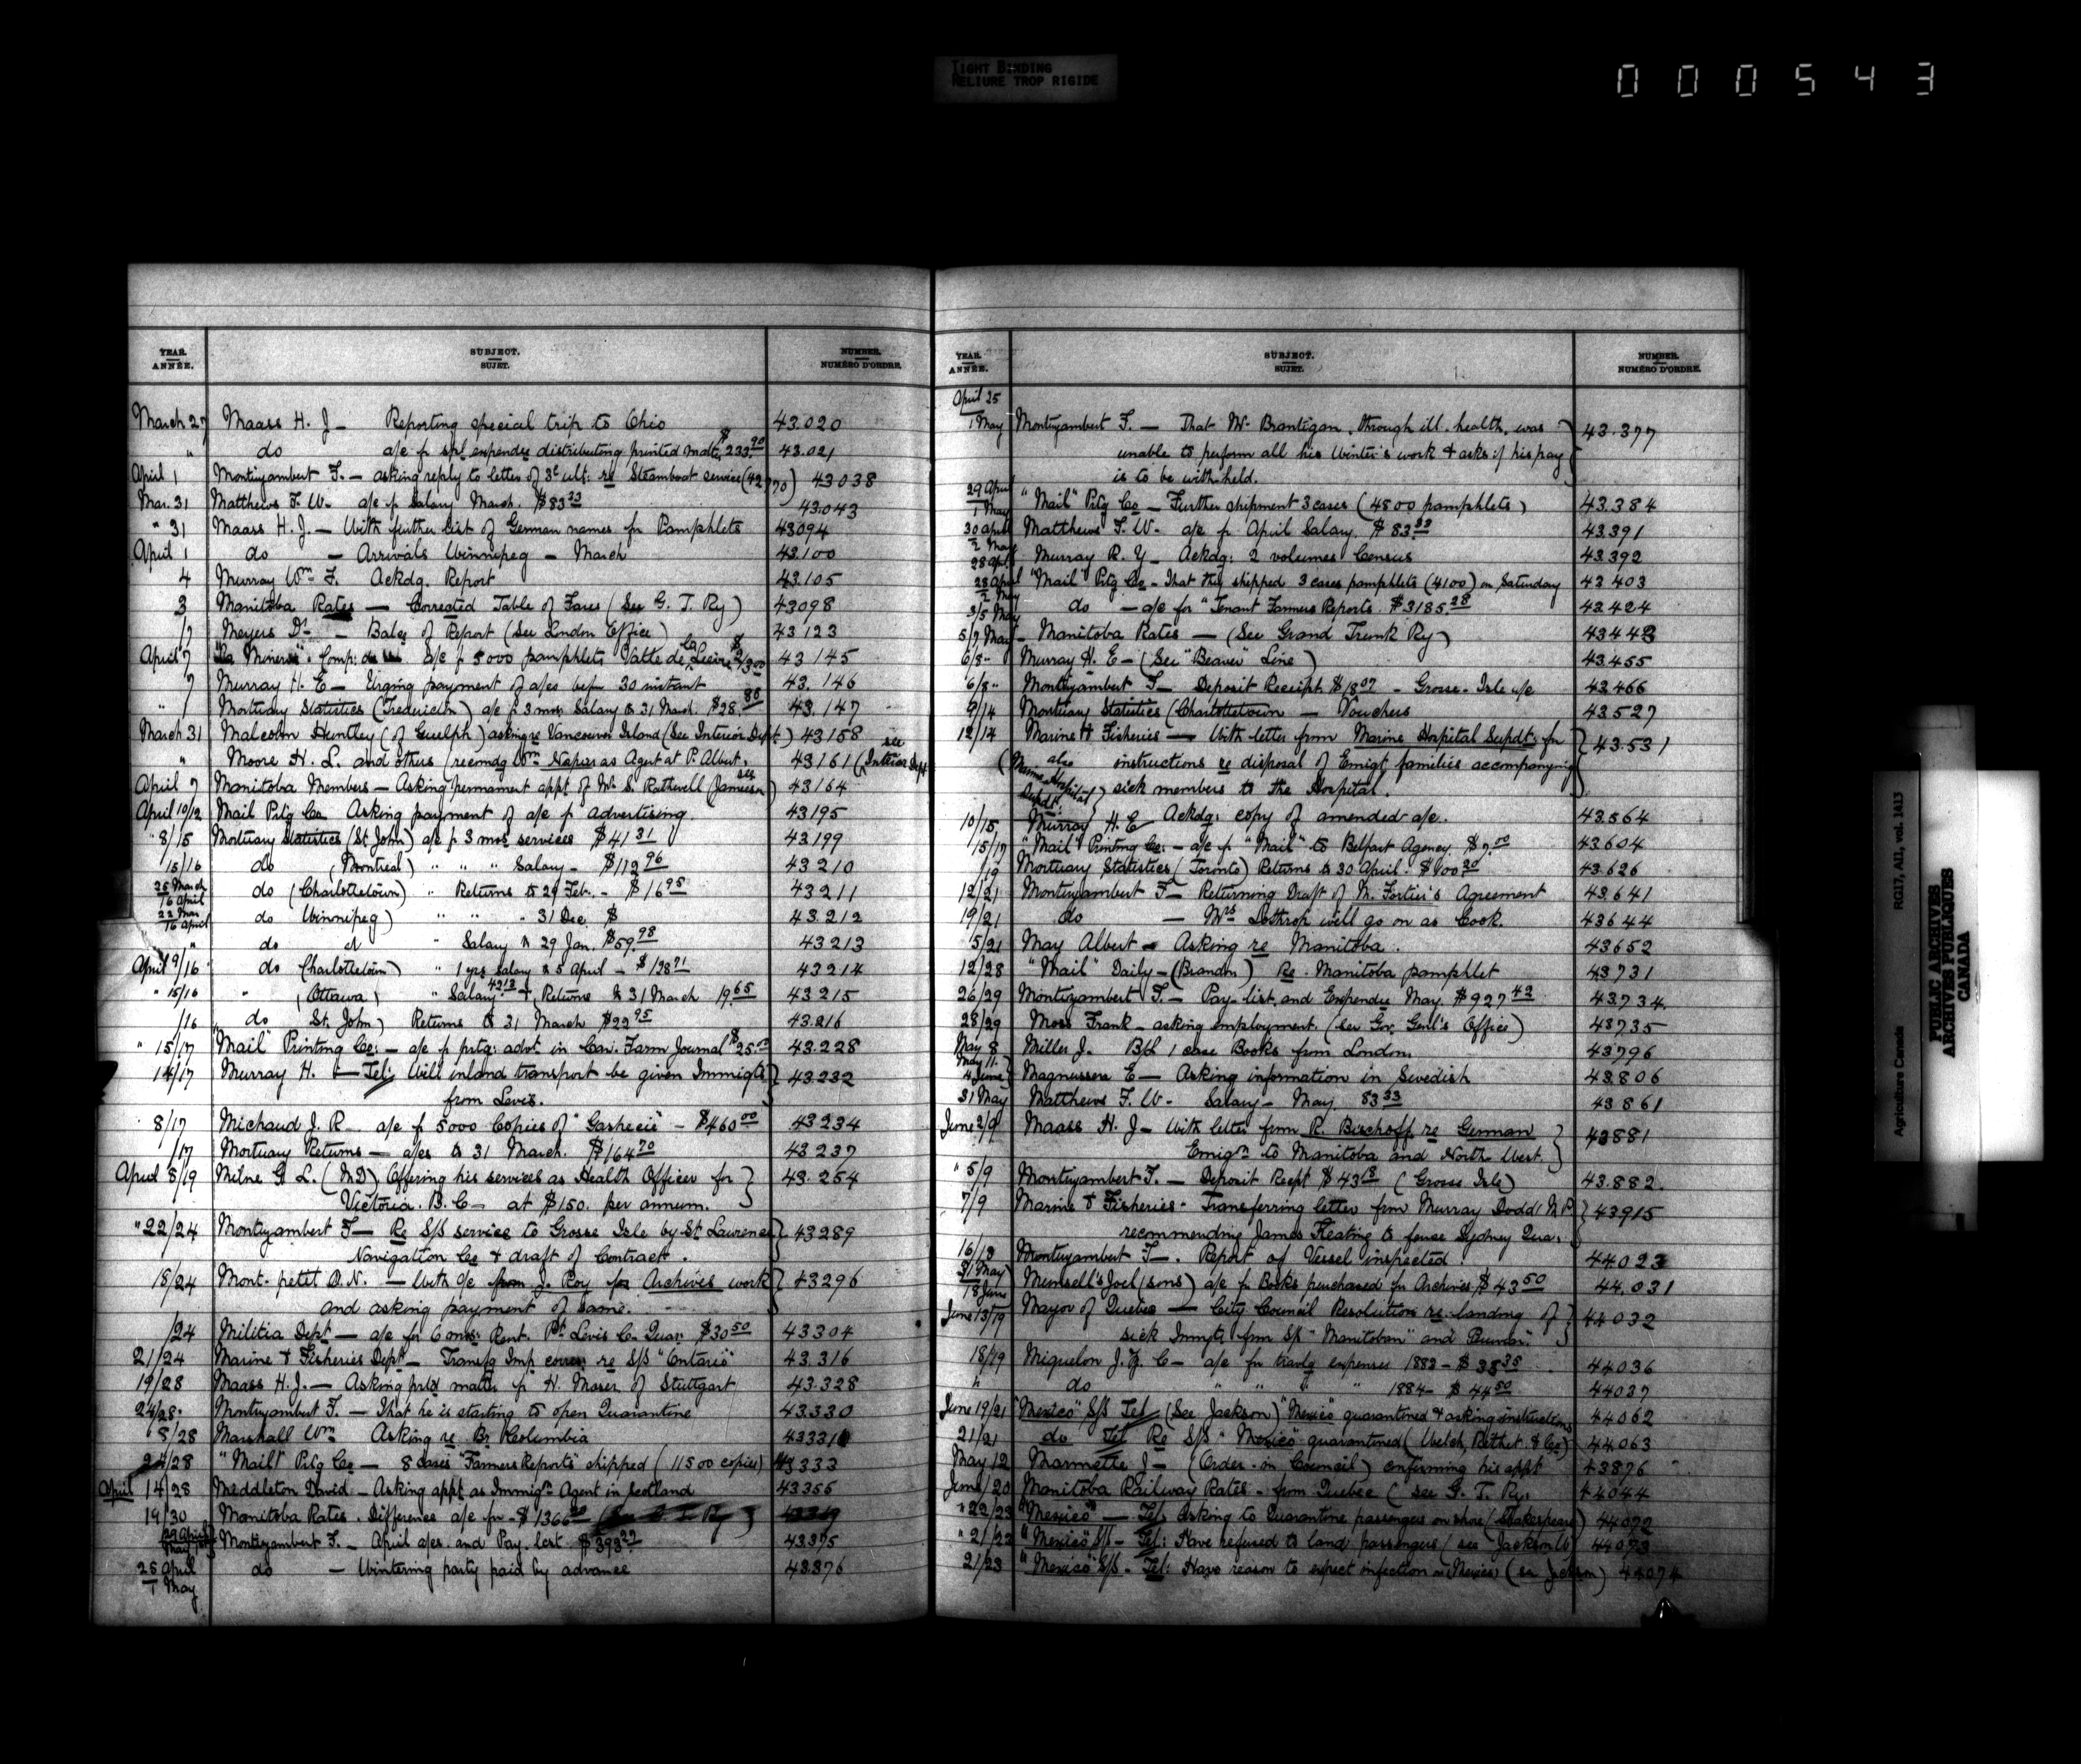 TIGHT BINDING
RELIURE TROP RIGIDE
000543
YEAR. ANNÉE. SUBJECT. SUJET. NUMBER. NUMÉRO D'ORDRE.
March 27 Maass H. J — Reporting special trip to Ohio 43.020
" do a/c f spl expendre distributing printed matr. $233.90 43.021
April 1 Montizambert F. — asking reply to letter of 3d ult: re Steamboat service (42970) 43038
Mar. 31 Matthews F. W. a/c f Salary March. $83 33 43.043
" 31 Maass H. J. — With further list of German names for Pamphlets 43094
April 1 do — Arrivals Winnipeg — March 43.100
4 Murray Wm F. Ackdg. Report 43.105
3 Manitoba Rates — Corrected Table of Fares (See G. T. Ry) 43098
/7 Meyers Dr — Balce of Report (See London Office) 43123
April 7 "La Minerve" Comp: de a/c f 5000 pamphlets Vallée de la Lièvre 43145
7 Murray H. E — Urging payment of a/cs befr 30 instant 43.146
" 7 Mortuary Statistics (Fredericton) a/c f 3 mos Salary to 31 March. $28 43.147
March 31 Malcolm Huntley (of Guelph) asking re Vancouver Island (See Interior Dept.) 43158
" Moore H. L. and others (recomdg Wm Napier as Agent at P. Albert. 43161 (see Interior Dept
April 7 Manitoba Members — Asking permanent appt of Mr S. Rothwell (see Jameson) 43164
April 10/12 Mail Ptg Co Asking payment of a/c f advertising. 43195
" 8/15 Mortuary Statistics (St John) a/c f 3 mos services $41 31 43199
15/16 do (Montreal) " " " Salary — $112 96 43210
25 March 16 April do (Charlottetown) " Returns to 29 Feb. — $16 95 43211
22 Mar 16 April do Winnipeg) " " " 31 Dec. $ 43.212
" do " " Salary to 29 Jan. $59.98 43213
April 9/16 do (Charlottetown) " 1 yrs salary to 5 April — 43214
" 15/16 " (Ottawa) " Salary & Returns to 31 March 19.65 43215
/16 " do St. John) Returns to 31 March $22 95 43.216
" 15/17 "Mail" Printing Co: — a/c f prtg: advt in Can. Farm Journal $25.00 43.228
14/17 Murray H. — Tel: Will inland transport be given Immigts 43232
from Levis.
8/17 Michaud J. R a/c f 5000 Copies of "Gaspecie" — $460 00 43234
/17 Mortuary Returns — a/cs to 31 March. $164 70 43237
April 8/19 Milne G. L. (M.D) Offering his services as Health Officer for 43.254
Victoria. B. C — at $150. per annum.
" 22/24 Montizambert F — Re S/S service to Grosse Isle by St Lawrence 43289
Navigation Co & draft of Contract.
18/24 Mont. petit A. N. — With a/c from J. Roy for Archives work 43296
and asking payment of same.
/24 Militia Dept — a/c for 6 mos: Rent. Pt Levis C. Quar. $30 50 43304
21/24 Marine & Fisheries Dept — Transfg Imp corres: re S/S "Ontario" 43.316
19/28 Maass H. J. — Asking prtd matter f H. Moser of Stuttgart 43.328
24/28 Montizambert F. — That he is starting to open Quarantine 43330
8/28 Marshall Wm Asking re Br Columbia 43331
24/28 "Mail" Ptg Co — 8 cases "Farmers Reports" shipped (11500 copies) 43333
April 14/28 Meddleton David — Asking appt as Immign Agent in Scotland 43355
19/30 Manitoba Rates. Difference a/c for $1366
29 April May Montizambert F. — April a/cs. and Pay. list $393 43.375
25 April 1 May do — Wintering party paid by advance 43376
YEAR. ANNÉE. SUBJECT. SUJET. NUMBER. NUMÉRO D'ORDRE.
April 25
1 May Montizambert F. — That Mr Brantigan, through ill. health, was 43.377
unable to perform all his Winter's work & asks if his pay
is to be withheld.
29 April 1 May "Mail" Ptg Co — Further shipment 3 cases (4800 pamphlets) 43.384
30 April 2 May Matthews F. W. a/c f April Salary. $83 33 43.391
28 Apl. Murray R. Y — Ackdg: 2 volumes Census 43.392
28 April 2 May "Mail" Ptg Co — That they shipped 3 cases pamphlets (4100) on Saturday 43403
3/5 May do — a/c for "Tenant Farmers Reports. $3185.28 43424
5/7 May Manitoba Rates — (See Grand Trunk Ry) 43443
6/8 " Murray H. E — (See "Beaver" Line) 43.455
6/8 " Montizambert F — Deposit Receipt $18 07 — Grosse-Isle a/c 43.466
9/14 Mortuary Statistics (Charlottetown — Vouchers 43.527
12/14 Marine & Fisheries — With letter from Marine Hospital Supdt: for 43.531
(also Marine Hospital Supdt:) instructions re disposal of Emigt families accompanying
sick members to the Hospital.
10/15 Murray H. E Ackdg: copy of amended a/c. 43.564
15/17 "Mail" Printing Co: — a/c f "Mail" to Belfast Agency $7.00 43604
/19 Mortuary Statistics (Toronto) Returns to 30 April. $100 20 43.626
12/21 Montizambert F — Returning Draft of M. Fortier's Agreement 43.641
19/21 do — Mrs Lothrop will go on as Cook. 43644
5/21 May Albert — Asking re Manitoba. 43652
12/28 "Mail" Daily — (Brandon) Re. Manitoba pamphlet 43731
26/29 Montizambert F. — Pay-list, and Expendre May. $927 42 43734
28/29 Moss Frank — asking employment. (See Gov. Genl's Office) 43735
May 8 Miller J. B/L 1 case Books from London 43796
May 11. 4 June Magnussen E — Asking information in Swedish 43.806
31 May Matthews F. W. Salary — May. 83 33 43861
June 2/9 Maass H. J — With letter from R. Bischoff re German 43881
Emign to Manitoba and North West.
" 5/9 Montizambert F. — Deposit Recpt $43 18 (Grosse Isle) 43.882.
7/9 Marine & Fisheries — Transferring letter from Murray Dodd M.P. 43915
recommending James Keating to fence Sydney Qua:
16/18 Montizambert F —. Report of Vessel inspected. 44023
31 May 18 June Munsell's Joel (sons) a/c f Books purchased for Archives $43 50 44,031
June 13/19 Mayor of Quebec — City Council Resolution re landing of 44032
sick Immgts from S/S "Manitoban" and
18/19 Miquelon J. Z. C — a/c for travlg expenses 1882 — $38 35 44036
" do " " " " 1884 — $44 50 44037
June 19/21 "Mexico" S/S Tel (See Jackson) "Mexico" quarantined & asking instructions 44062
21/21 do Tel Re S/S "Mexico" quarantined (Welch, Rithet & Co) 44063
May 12 Marmette J — (Order-in Council) confirming his appt 43876
June /20 Manitoba Railway Rates — from Quebec (see G. T. Ry. 44044
" 22/23 "Mexico" — Tel: Asking to Quarantine passengers on shore (Shakespeare) 44072
" 21/23 "Mexico" S/S — Tel: Have refused to land passengers (see Jackson W) 44073
21/23 "Mexico" S/S — Tel: Have reason to expect infection on "Mexico" (see Jackson) 44074
Agriculture Canada RG17, AII, vol. 1413
PUBLIC ARCHIVES
ARCHIVES PUBLIQUES
CANADA